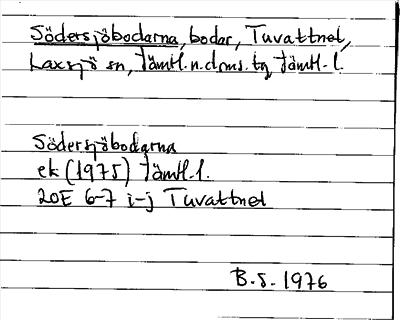 Södersjöbodarna, bodar, Tuvattnet,
Laxsjö sn, Jämtl.n.doms.tg Jämtl.l.
Södersjöbodarna
ek (1975) Jämtl.l.
20E 6-7 i-j Tuvattnet
B.S. 1976